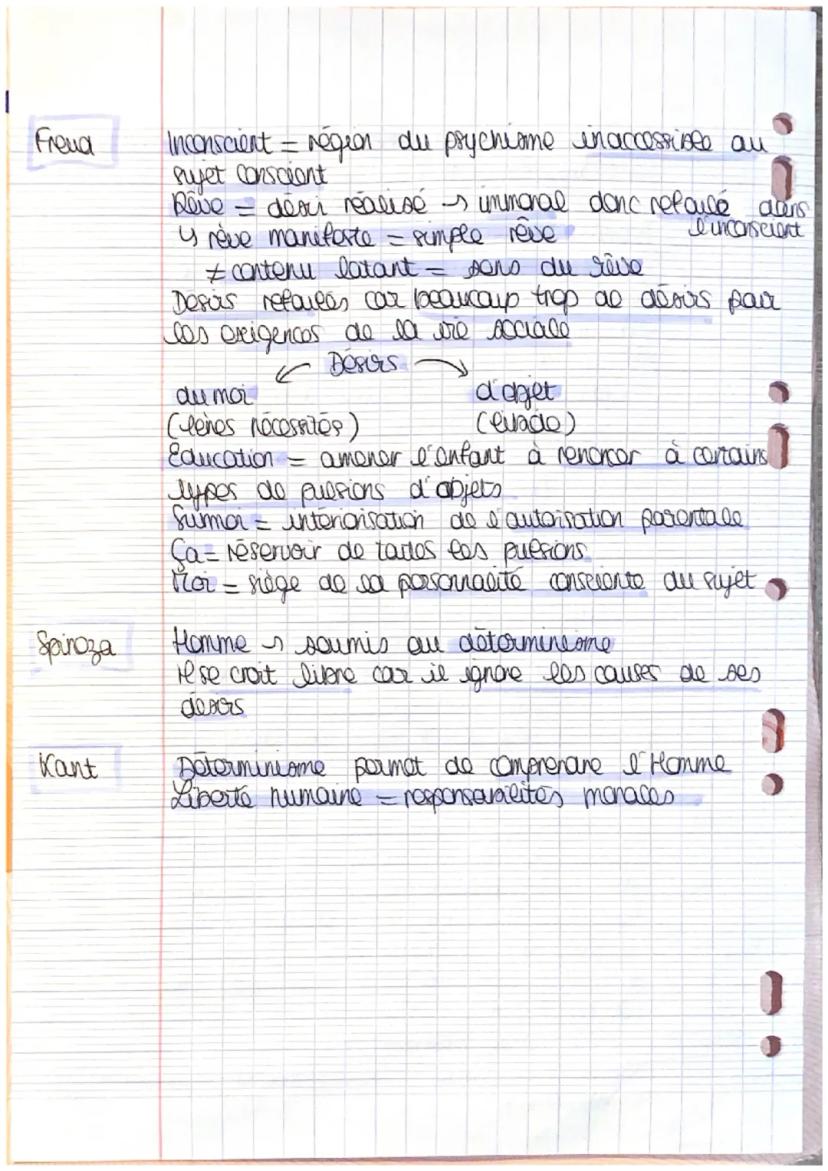 Freud
Inconscient = région du psychisme inaccessible au
sujet conscient
Rêve = désir réalisé → immoral donc refoulé dans
l'inconscient
↳ rêve manifeste = simple rêve
≠ contenu latent = sens du rêve
Désirs refoulés car beaucoup trop de désirs pour
les exigences de la vie sociale
← Désirs →
du moi
d'objet
(nécessités)
(libido)
Education = amener l'enfant à renoncer à certains
types de pulsions d'objets
Surmoi = intériorisation de l'autorisation parentale
Ça = réservoir de toutes les pulsions
Moi = siège de la personnalité consciente du sujet
Spinoza
Homme → soumis au déterminisme
Il se croit libre car il ignore les causes de ses
désirs
Kant
Déterminisme permet de comprendre l'Homme
Liberté humaine = responsabilités morales